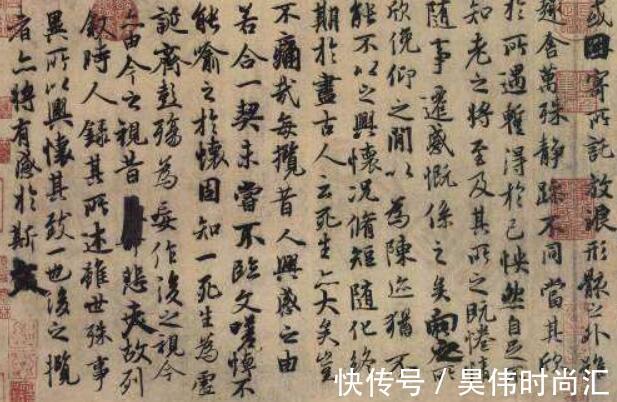 或因寄所託放浪形骸之外雖
趣舍萬殊靜躁不同當其欣
於所遇暫得於己怏然自足
知老之將至及其所之既惓情
隨事遷感慨係之矣向之所
欣俛仰之閒以為陳迹猶不
能不以之興懷況脩短隨化終
期於盡古人云死生亦大矣豈
不痛哉每攬昔人興感之由
若合一契未嘗不臨文嗟悼不
能喻之於懷固知一死生為虛
誕齊彭殤為妄作後之視今
亦由今之視昔悲夫故列
敘時人錄其所述雖世殊事
異所以興懷其致一也後之攬
者亦將有感於斯文
快传号／昊伟时尚汇